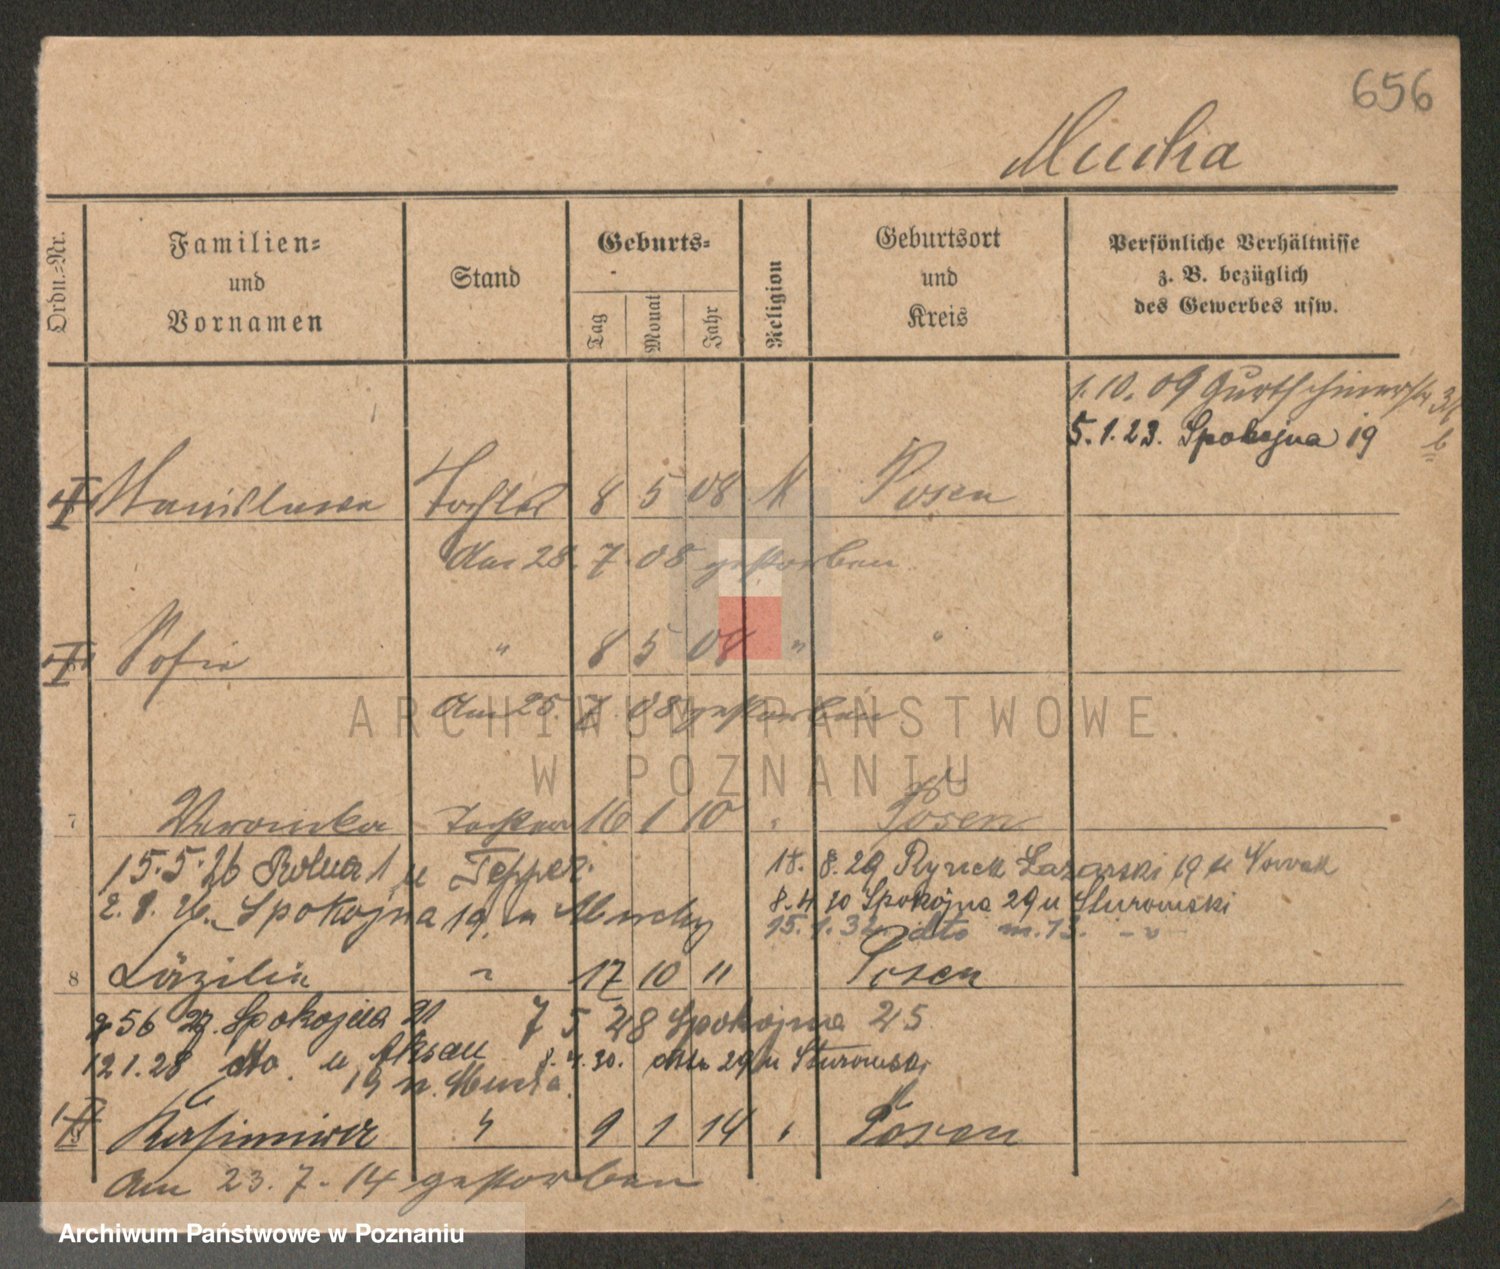 656
Mucha
Ordn.-Nr.
Familien-
und
Vornamen
Stand
Geburts-
Tag
Monat
Jahr
Religion
Geburtsort
und
Kreis
Persönliche Verhältnisse
z. B. bezüglich
des Gewerbes usw.
1.10.09 Gurtschinerstr
5.1.23. Spokojna 19
Stanislawa Tochter 8 5 08 K Posen
Am 28. 7. 08 gestorben
Sofie " 8 5 08 " "
Am 25. 7. 08 gestorben
ARCHIWUM PAŃSTWOWE
W POZNANIU
7 Veronika Tochter 16 1 10 Posen
15.5.26 Rolna u Tepper.
18. 8. 29 Rynek Łazarski 19 u Nowak
2.8.26. Spokojna 19 u Muchy
8.4 30 Spokojna 29 u Sturomski
15.1.32 dto m.13. - " -
8 Läzilie " 17 10 11 Posen
27. Spokojna 21 7 5 28 Spokojna 25
12.1.28 dto u 8.4.30. 29 u Sturomski
19 u. Mucha
Kasimira " 9 1 14 " Posen
Am 23.7.14 gestorben
Archiwum Państwowe w Poznaniu